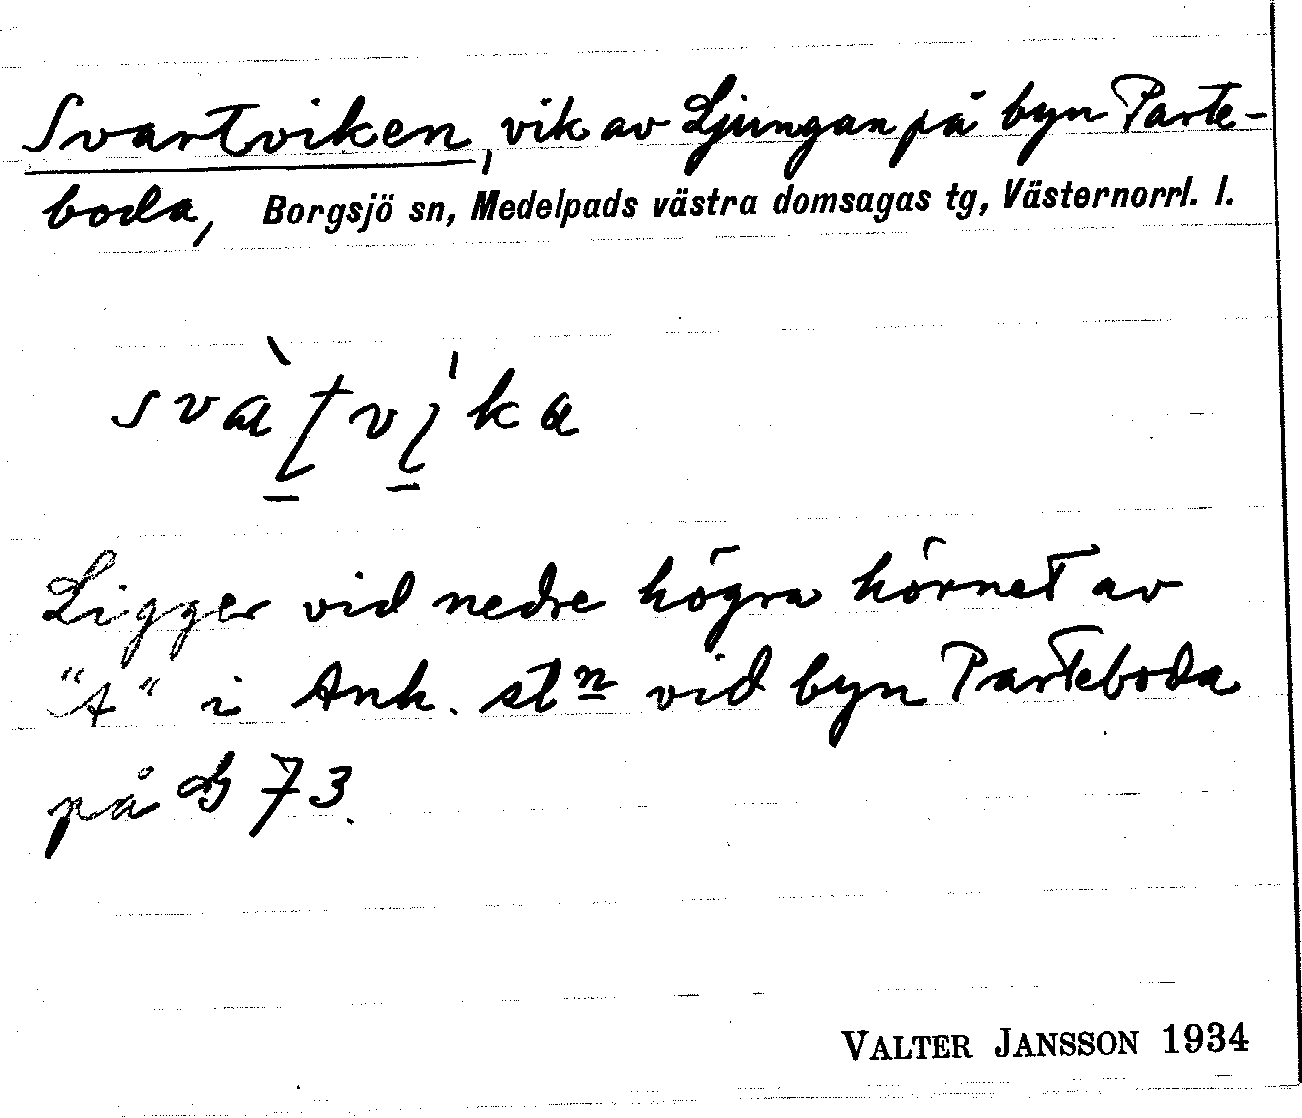 Svartviken, vik av Ljungan på byn Parte-
boda, Borgsjö sn, Medelpads västra domsagas tg, Västernorrl. l.
Ligger vid nedre högra hörnet av
"A" i Ank. stn vid byn Parteboda
på G 73.
VALTER JANSSON 1934